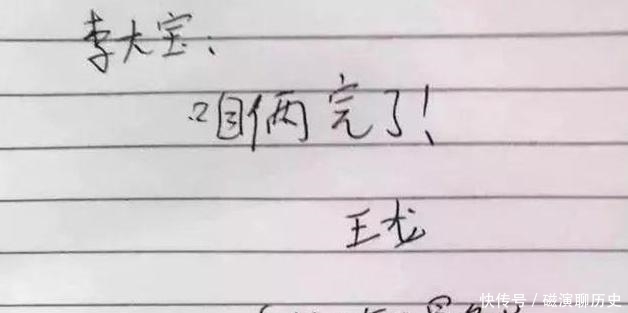 李大宝：
咱俩完了！
王龙
快传号/磁演聊历史